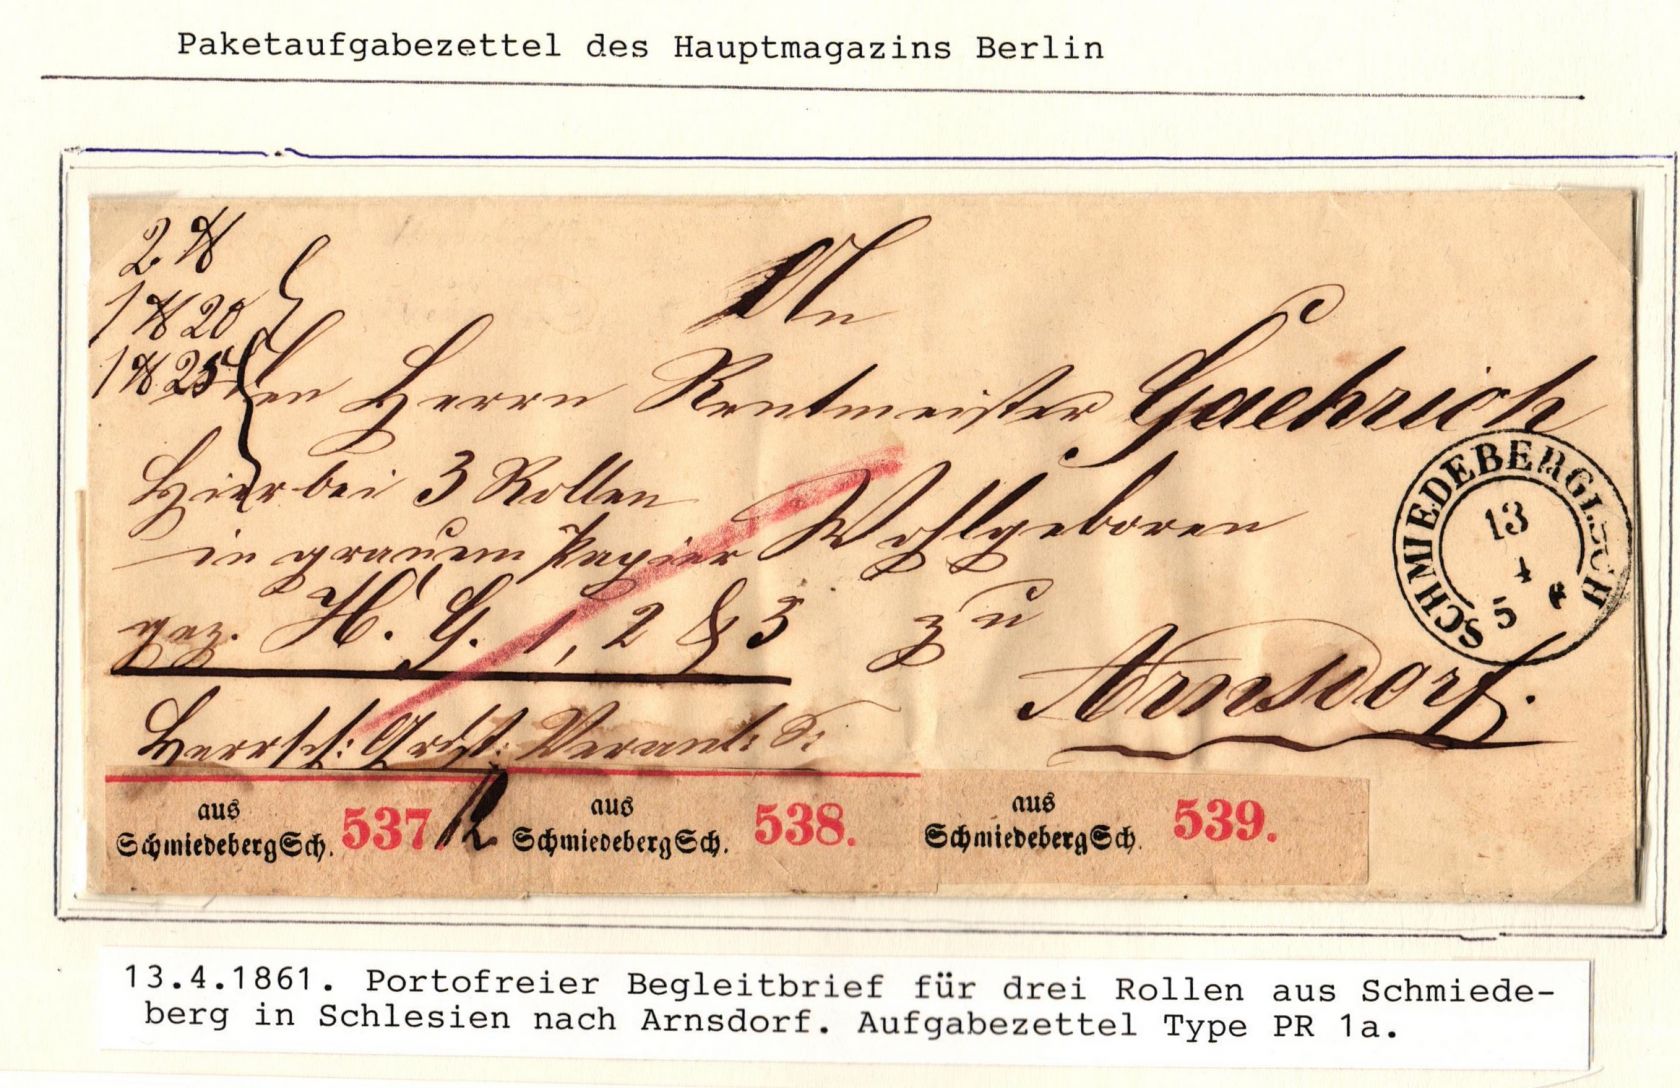 Paketaufgabezettel des Hauptmagazins Berlin
2 ℔
1 ℔ 20
1 ℔ 25
An
den Herrn Rentmeister Gaehrich
Hierbei 3 Rollen
Wohlgeboren
in grauem Papier
gez. H. G. 1, 2 & 3
zu
Arnsdorf.
Herrsch:
SCHMIEDEBERG I. SCH
13
4
5
aus
Schmiedeberg Sch. 537.
aus
Schmiedeberg Sch. 538.
aus
Schmiedeberg Sch. 539.
13.4.1861. Portofreier Begleitbrief für drei Rollen aus Schmiede-
berg in Schlesien nach Arnsdorf. Aufgabezettel Type PR 1a.